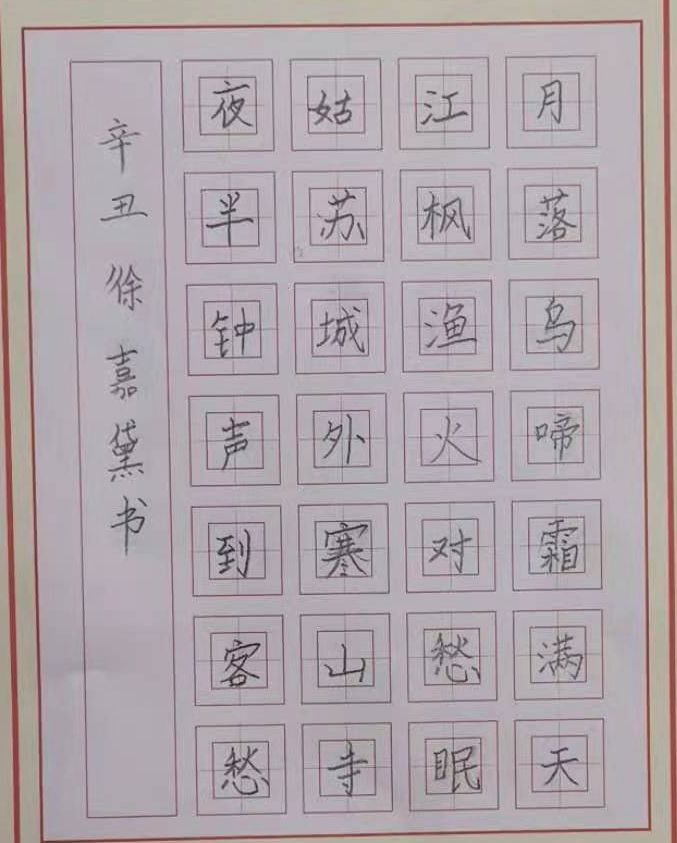 月落乌啼霜满天
江枫渔火对愁眠
姑苏城外寒山寺
夜半钟声到客愁
辛丑徐嘉黛书